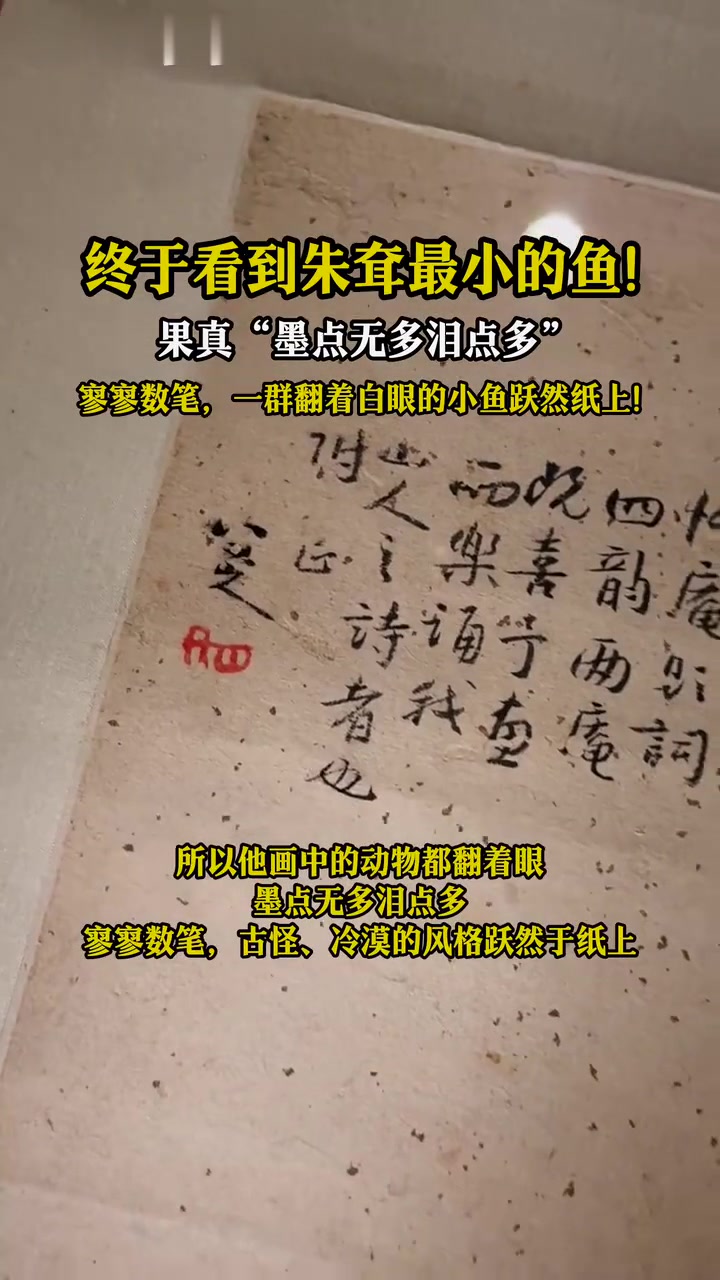 终于看到朱耷最小的鱼!
果真“墨点无多泪点多”
寥寥数笔，一群翻着白眼的小鱼跃然纸上!
庵
詞
四韵两庵
喜
而樂誦我
山人之詩者也
附正
八大
所以他画中的动物都翻着眼
墨点无多泪点多
寥寥数笔，古怪、冷漠的风格跃然于纸上